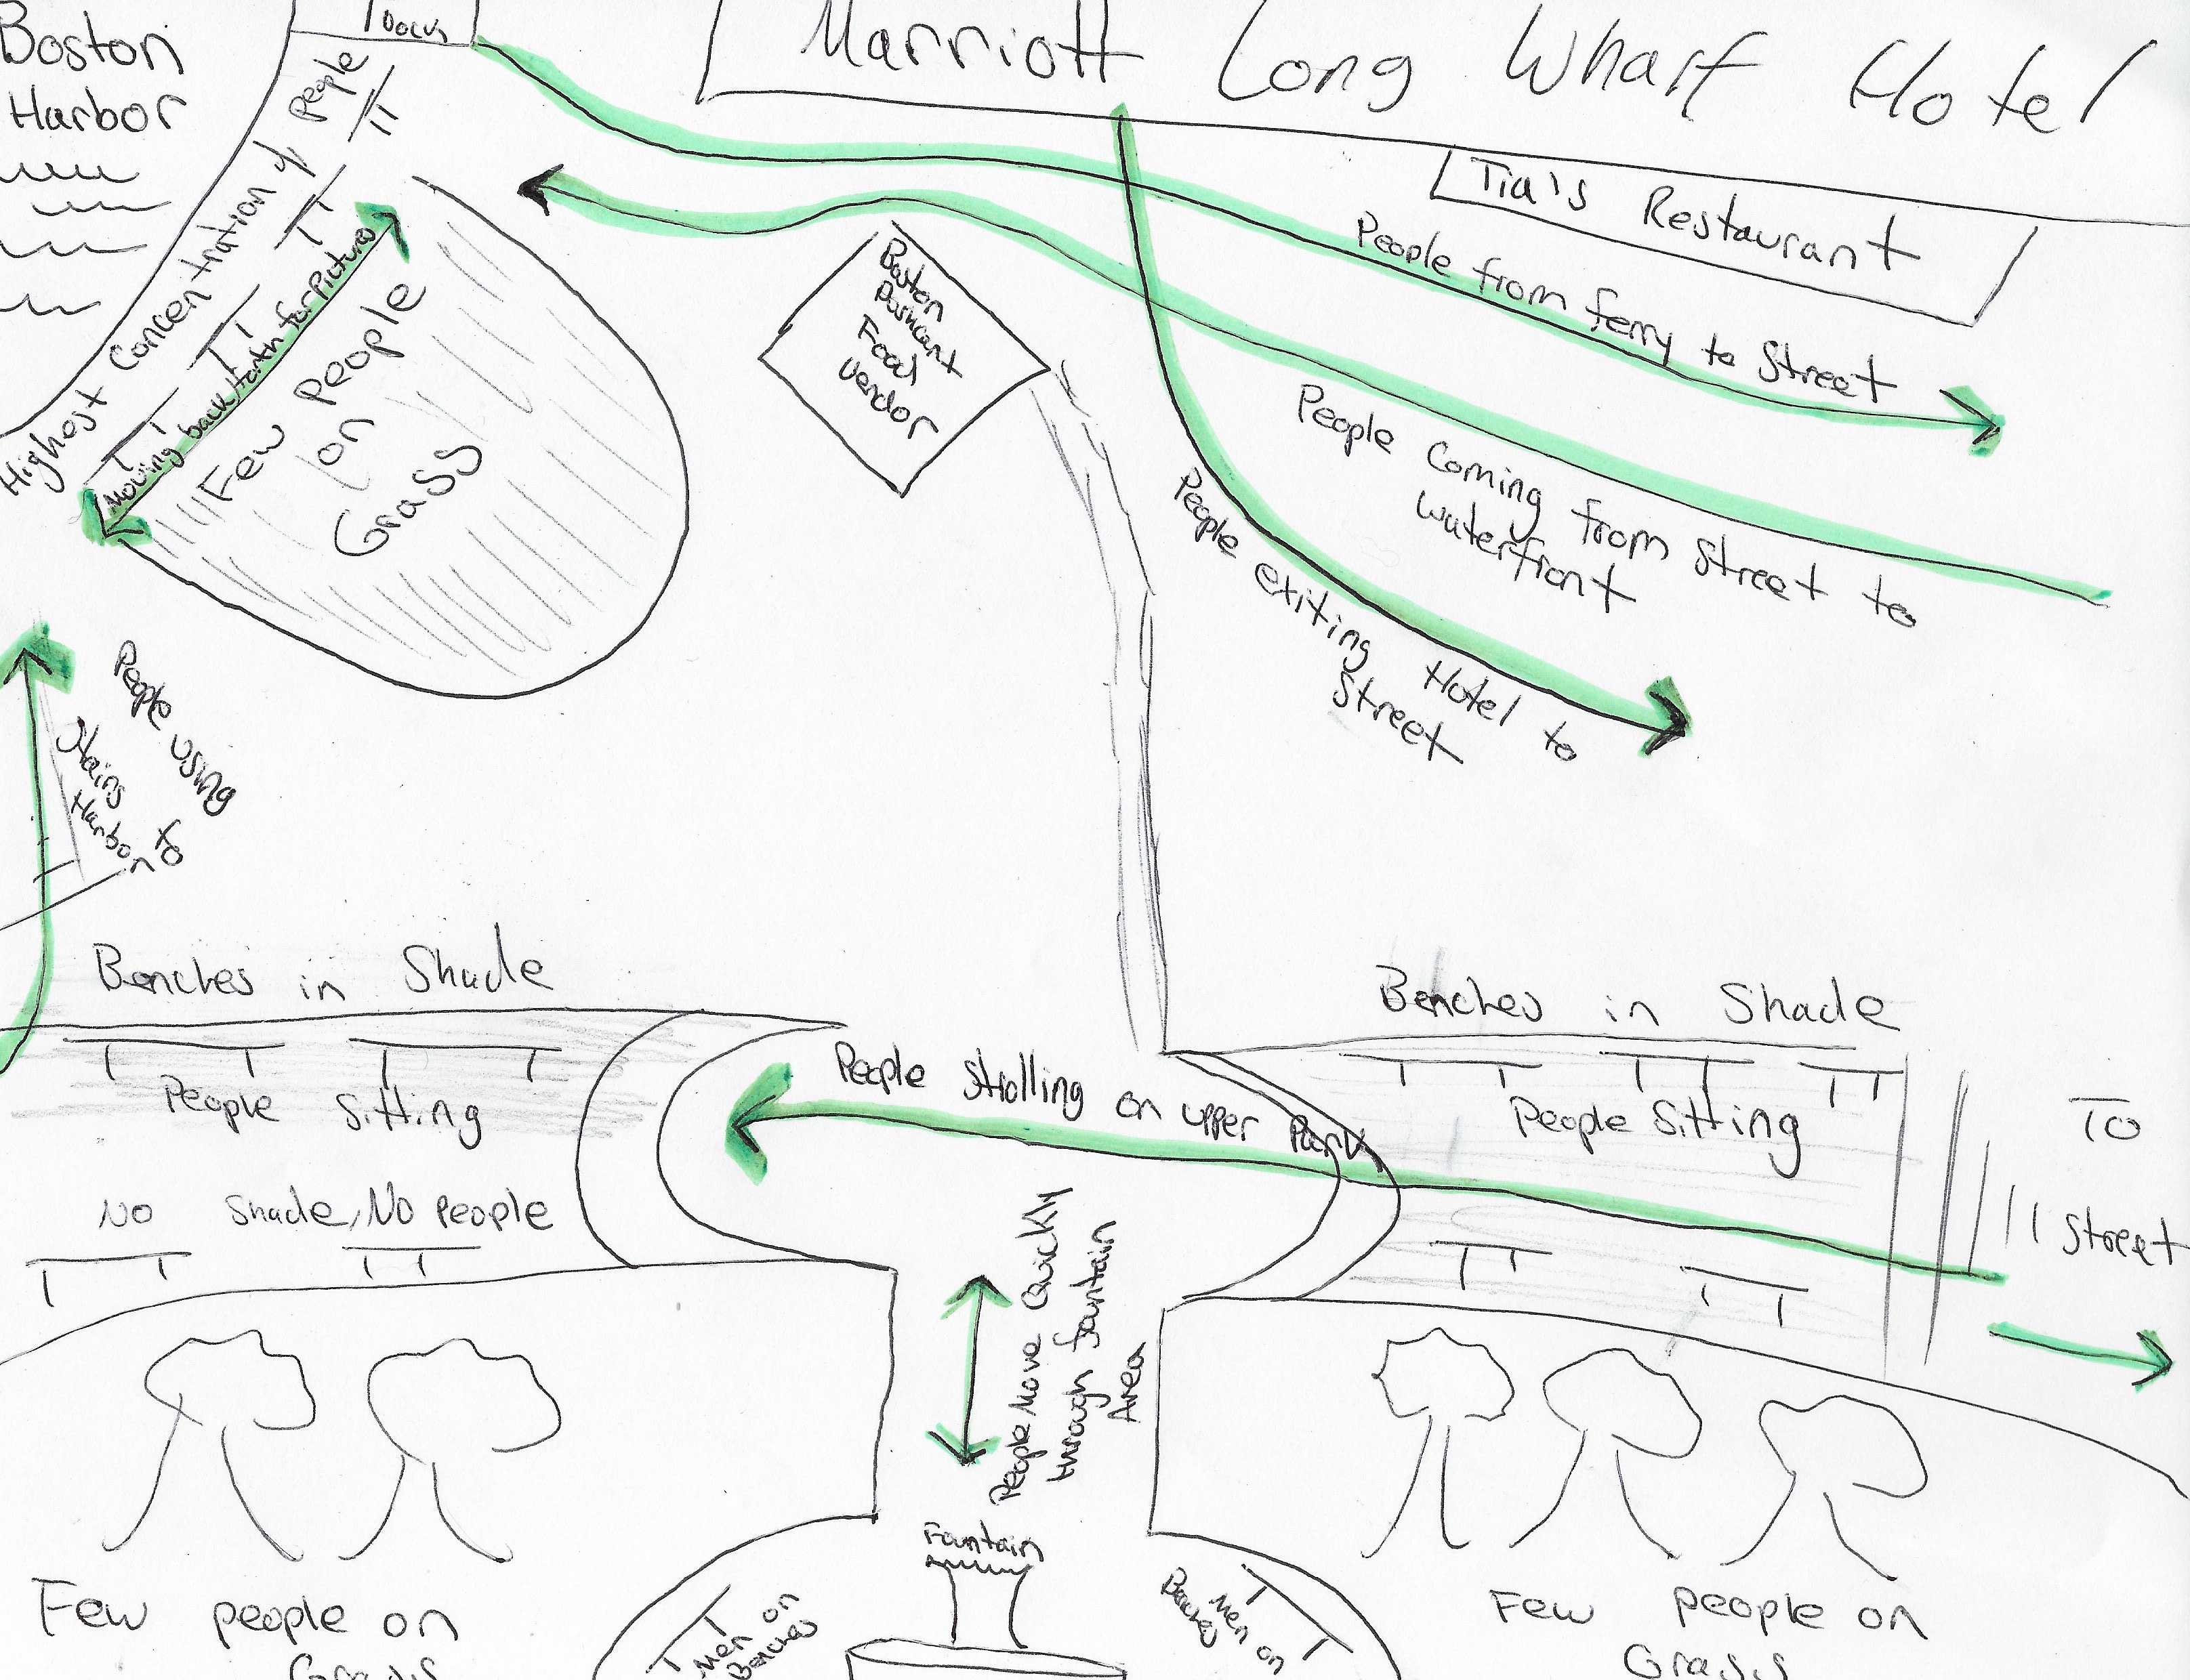 Boston
Harbor
Dock
Marriott Long Wharf Hotel
Tia's Restaurant
Highest Concentration of people
Moving back/forth for Pictures
Few people
on
Grass
Boston
Food
Vendor
People from ferry to Street
People Coming from Street to
waterfront
People exiting Hotel to
Street
People using
Stairs to
Harbor
Benches in Shade
People Sitting
No Shade, No people
People Strolling on upper Park
Benches in Shade
People Sitting
To
Street
People Move Quickly
through fountain
Area
Fountain
Men on
Benches
Men on
Benches
Few people on
Grass
Few people on
Grass